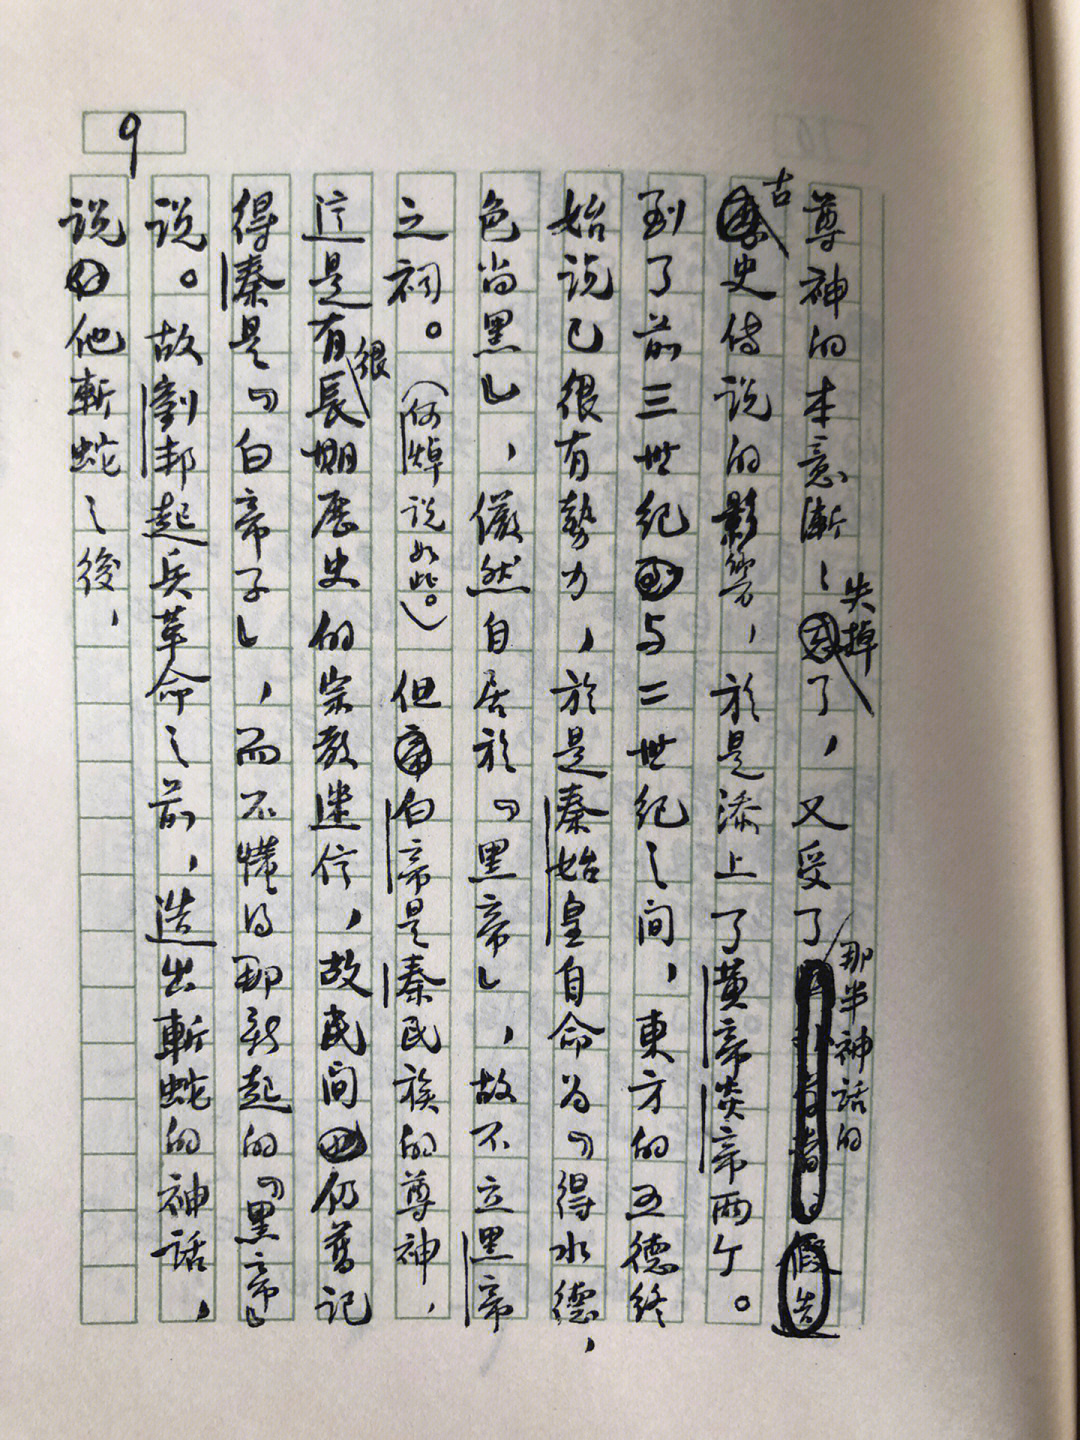 9
尊神的本意漸〻失掉了，又受了那半神話的
古史传说的影響，於是添上了黄帝炎帝兩个。
到了前三世纪与二世纪之间，東方的五德终
始说已很有勢力，於是秦始皇自命为『得水德，
色尚黑』，儼然自居於『黑帝』，故不立黑帝
之祠。（何焯说如此。）但白帝是秦民族的尊神，
这是有很長期歷史的宗教迷信，故民间仍舊记
得秦是『白帝子』，而不懂得那新起的『黑帝』
说。故劉邦起兵革命之前，造出斬蛇的神話，
说他斬蛇之後，